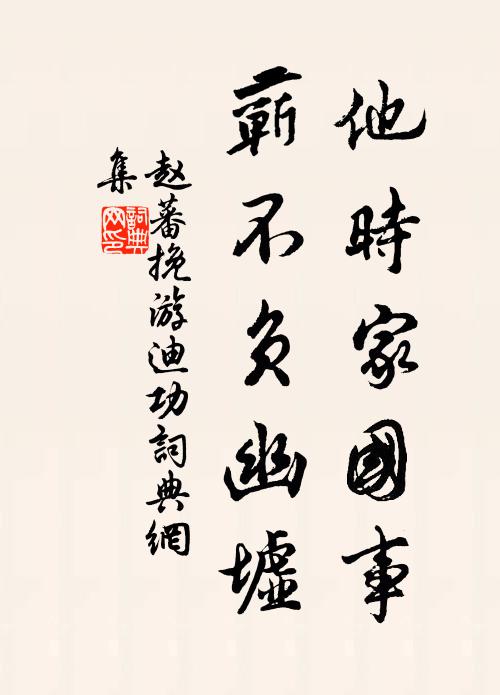 他時家國事
蘄不負幽墟
赵蕃挽游迪功詞典網
集
詞典網